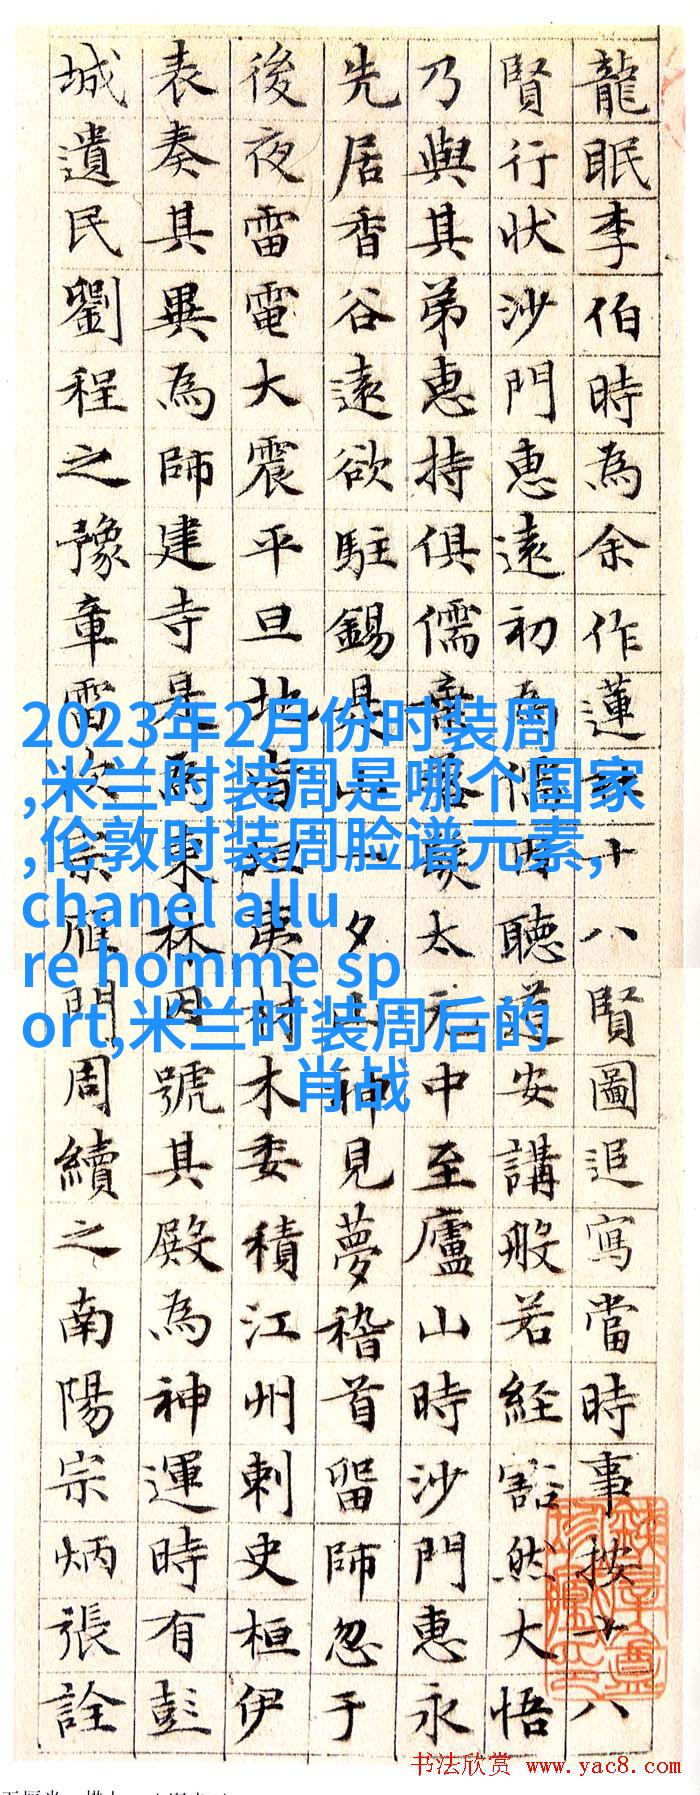 龍眠李伯時為余作蓮十八賢圖追寫當時事按十八
賢行狀沙門惠遠初為儒因聽道安講般若經豁然大悟
乃與其弟惠持俱儒太元中至廬山時沙門惠永
先居香谷遠欲駐錫是山一夕山神見夢稽首留師忽于
後夜雷電大震平旦地皆坦夷材木委積江州刺史桓伊
表奏其異為師建寺是為東林因號其殿為神運時有彭
城遺民劉程之豫章雷次宗雁門周續之南陽宗炳張詮
2023年2月份时装周
,米兰时装周是哪个国家
,伦敦时装周脸谱元素,
chanel allu
re homme sp
ort,米兰时装周后的
肖战
书法欣赏 www.yac8.com